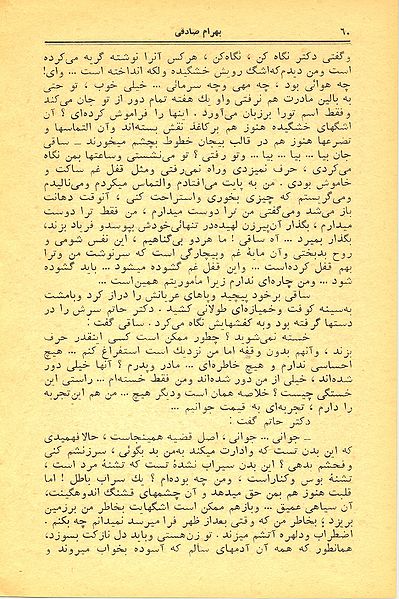 ۶۰
بهرام صادقی
وگفتی دکتر نگاه کن ، نگاه‌کن ، هرکس آنرا نوشته گریه می‌کرده
است ومن دیدم‌که‌اشگ رویش خشکیده ولکه انداخته است ... وای!
چه هوائی بود ، چه مهی وچه سرمائی ... خیلی خوب ، تو حتی
به بالین مادرت هم نرفتی واو یك هفته تمام دور از تو جان می‌کند
وفقط اسم تورا برزبان می‌آورد . اینها را فراموش کرده‌ای ؟ آن
اشگهای خشکیده هنوز هم برکاغذ نقش بسته‌اند وآن التماسها و
تضرعها هنوز هم در قالب بیجان خطوط بچشم میخورند ـ ساقی
جان بیا ... بیا ... بیا ... وتو رفتی ؟ تو می‌نشستی وساعتها بمن نگاه
می‌کردی ، حرف نمیزدی وراه نمی‌رفتی ومثل قفل غم ساکت و
خاموش بودی . من به پایت می‌افتادم والتماس میکردم ومی‌نالیدم
ومی‌گریستم که چیزی بخوری واستراحت کنی ، آنوقت دهانت
باز می‌شد ومی‌گفتی من ترا دوست میدارم ، من فقط ترا دوست
میدارم ، بگذار آن‌پیرزن لهیده‌در تنهائی‌خودش بپوسدو فریاد بزند،
بگذار بمیرد ... آه ساقی ! ما هردو بی‌گناهیم ، این نفس شومی و
روح بدبختی وآن مایهٔ غم وبیچارگی است که سرنوشت من وترا
بهم قفل کرده‌است ... واین قفل غم گشوده میشود ... باید گشوده
شود ... ومن چاره‌ای ندارم زیرا ماموریتم همین‌است ...
ساقی برخود پیچید وپاهای عریانش را دراز کرد وبامشت
به‌سینه کوفت وخمیازه‌ای طولانی کشید . دکتر حاتم سرش را در
دستها گرفته بود وبه کفشهایش نگاه می‌کرد . ساقی گفت :
خسته نمی‌شوید ؟ چطور ممکن است کسی اینقدر حرف
بزند ، وآنهم بدون وقفه اما من نزدیك است استفراغ کنم ... هیچ
احساسی ندارم و هیچ خاطره‌ای ... مادر وپدرم ؟ آنها خیلی دور
شده‌اند ، خیلی از من دور شده‌اند ومن فقط خسته‌ام ... راستی این
خستگی چیست ؟ خلاصه همان است ودیگر هیچ ... من هم این‌تجربه
را دارم ، تجربه‌ای به قیمت جوانیم ...
دکتر حاتم گفت :
ـ جوانی ... جوانی ، اصل قضیه همینجاست ، حالا فهمیدی
که این بدن تست که وادارت میکند به‌من بد بگوئی ، سرزنشم کنی
وفحشم بدهی ؟ این بدن سیراب نشدهٔ تست که تشنهٔ مرد است ،
تشنهٔ بوس وکناراست ، ومن چه بوده‌ام ؟ یك سراب باطل ! اما
قلبت هنوز هم بمن حق میدهد و آن چشمهای قشنگ اندوهگینت،
آن سیاهی عمیق ... وبازهم ممکن است اشگهایت بخاطر من برزمین
بریزد ؛ بخاطر من که وقتی بعداز ظهر فرا میرسد نمیدانم چه بکنم .
اضطراب ودلهره آتشم میزند . تو زن‌هستی وباید دل نازکت بسوزد،
همانطور که همه آن آدمهای سالم که آسوده بخواب میروند و